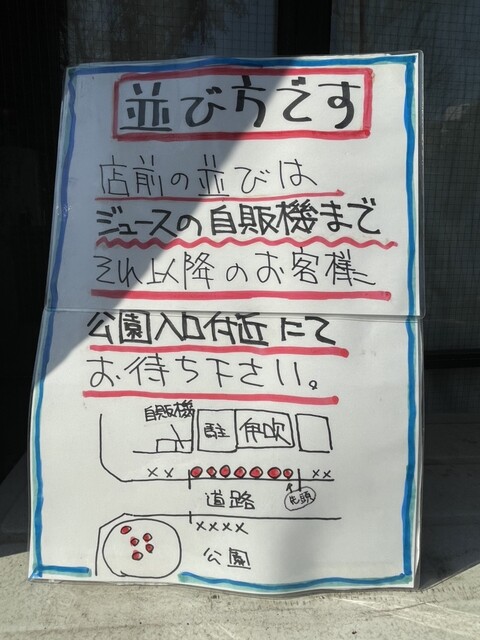 並び方です
店前の並びは
ジュースの自販機まで
それ以降のお客様
公園入口付近にて
お待ち下さい。
自販機
駐 伊吹
×× ××
道路 先頭
××××
公園